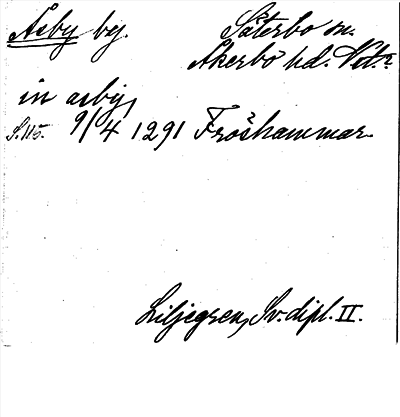 Åsby by. Säterbo sn.
Åkerbo hd. Vstm.
in asby,
S. 115. 9/4 1291 Fröshammar.
Liljegren, Sv. dipl. II.